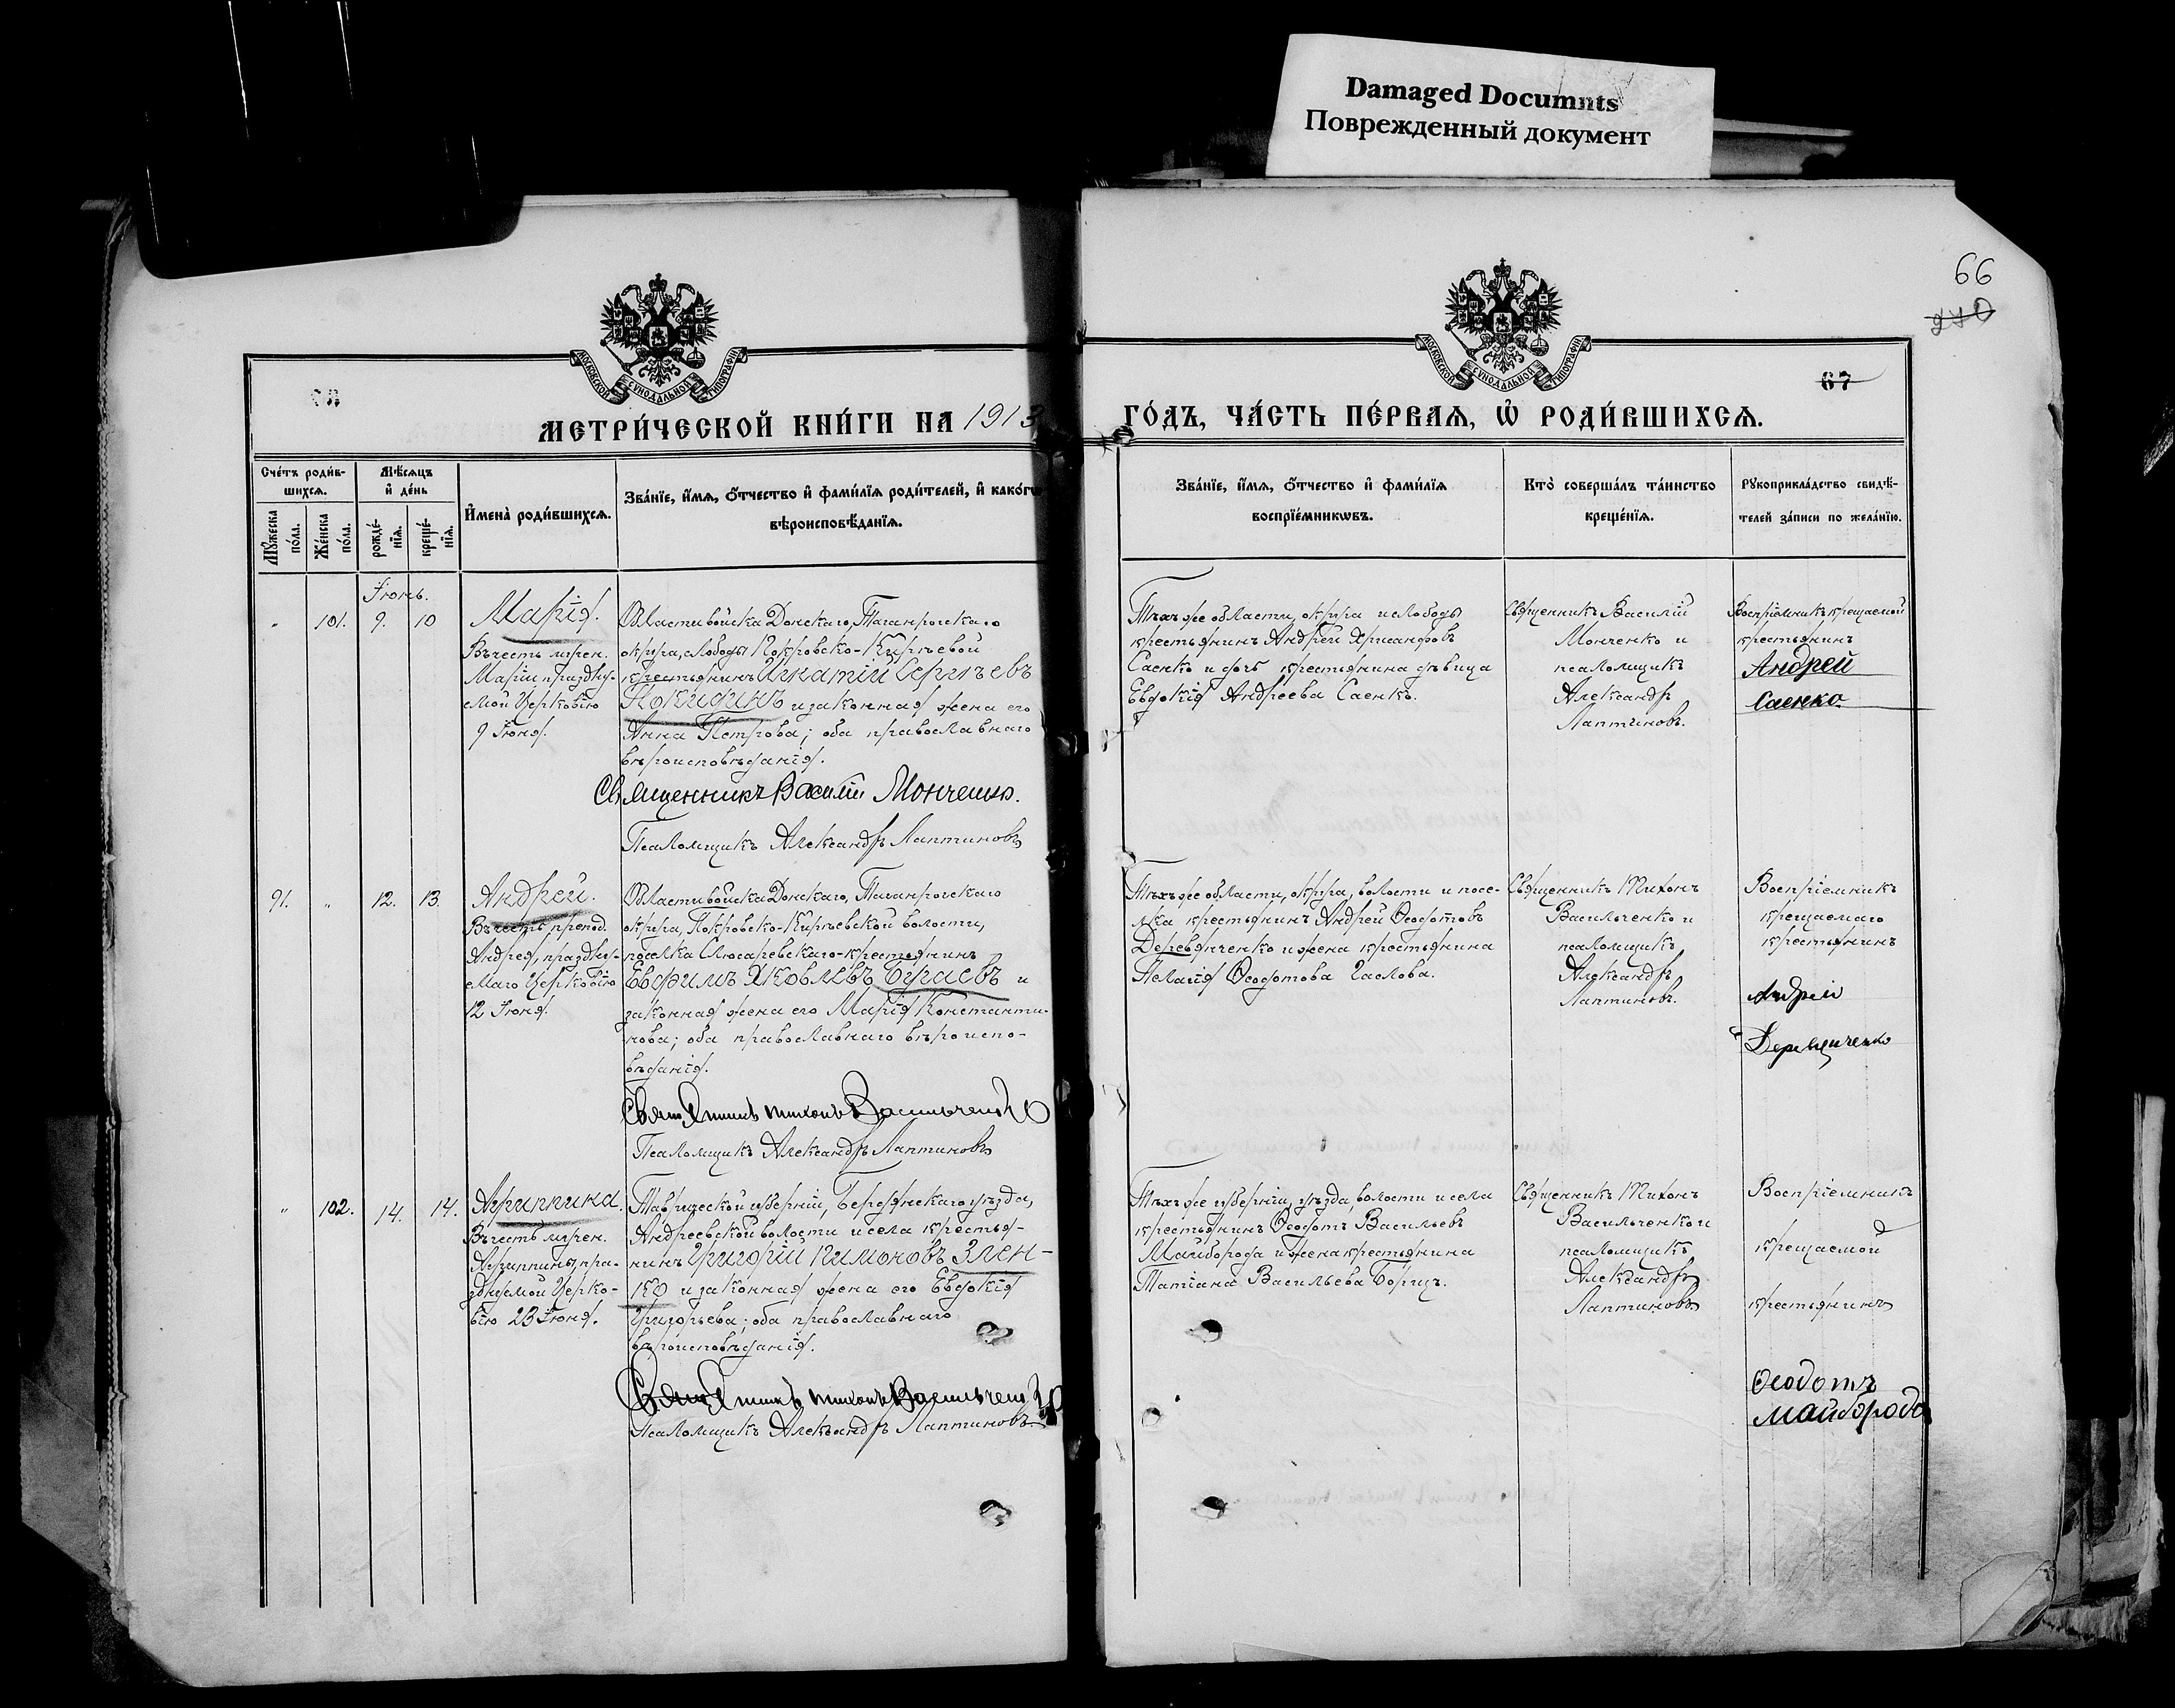 Damaged Documnts
Поврежденный документ
66
67
МОСКОВСКОЙ СѴНОДАЛЬНОЙ ТИПОГРАФІИ
МОСКОВСКОЙ СѴНОДАЛЬНОЙ ТИПОГРАФІИ
МЕТРИ́ЧЕСКОЙ КНИ́ГИ НА 1913
ГО́ДЪ, ЧА́СТЬ ПЕ́РВАЯ, Ѽ РОДИ́ВШИХСЯ.
Сче́тъ роди́в-
шихся.
Мѣ́сяцъ
и҆ де́нь
Мꙋ́жеска по́ла.
Же́нска по́ла.
рожде́-
нїя.
креще́-
нїя.
И҆мена̀ роди́вшихся.
Зва́нїе, и҆́мя, ѻ҆́тчество и҆ фами́лїя роди́телей, и҆ како́гѡ
вѣроисповѣ́данїя.
Зва́нїе, и҆́мя, ѻ҆́тчество и҆ фами́лїя
воспрїе́мникѡвъ.
Кто̀ соверша́лъ та́инство
креще́нїя.
Рꙋкоприкла́дство свидѣ́-
телей за́писи по жела́нїю.
Іюнь.
" 101. 9. 10
Марія.
Въ честь мучен.
Маріи празднуе-
мой Церковію
9 Іюня.
Области войска Донского, Таганрогскаго
округа, слободы Покровско-Киреевой
крестьянинъ Игнатій Сергѣевъ
и законная жена его
Анна Петрова; оба православнаго
вѣроисповѣданія.
Священникъ Василій Монченко.
Псаломщикъ Александръ Лаптиновъ
Тѣхъ же области, округа и слободы
крестьянинъ Андрей Хрисанфовъ
Саенко и дочь крестьянина дѣвица
Евдокія Андреева Саенко.
Священникъ Василій
Монченко и
псаломщикъ
Александръ
Лаптиновъ.
Воспріемникъ крещаемой
крестьянинъ
Андрей
Саенко.
91. " 12. 13.
Андрей.
Въ честь препод.
Андрея, празднуе-
маго Церковію
12 Іюня.
Области войска Донскаго, Таганрогскаго
округа, Покровско-Киреевской волости,
поселка Слюсаревскаго-крестьянинъ
Евфимъ Яковлевъ Бугаевъ и
законная жена его Марія Константи-
нова; оба православнаго вѣроиспо-
вѣданія.
Священникъ Тихонъ Васильченко
Псаломщикъ Александръ Лаптиновъ
Тѣхъ же области, округа, волости и посе-
лка крестьянинъ Андрей Ѳеодотовъ
Деревянченко и жена крестьянина
Пелагія Ѳеодотова
Священникъ Тихонъ
Васильченко и
псаломщикъ
Александръ
Лаптиновъ.
Воспріемникъ
крещаемаго
крестьянинъ
Андрей
" 102. 14. 14.
Агриппина.
Въ честь мучен.
Агриппины, пра-
зднуемой Церко-
вію 23 Іюня.
Таврической губерніи, Бердянскаго уѣзда,
Андреевской волости и села крестья-
нинъ Григорій Пимоновъ Злен-
ко и законная жена его Евдокія
Григорьева; оба православнаго
вѣроисповѣданія.
Священникъ Тихонъ Васильченко
Псаломщикъ Александръ Лаптиновъ
Тѣхъ же губерніи, уѣзда, волости и села
крестьянинъ Ѳеодотъ Васильевъ
Майборода и жена крестьянина
Татіана Васильева
Священникъ Тихонъ
Васильченко и
псаломщикъ
Александръ
Лаптиновъ
Воспріемникъ
крещаемой
крестьянинъ
Ѳеодотъ
Майборода